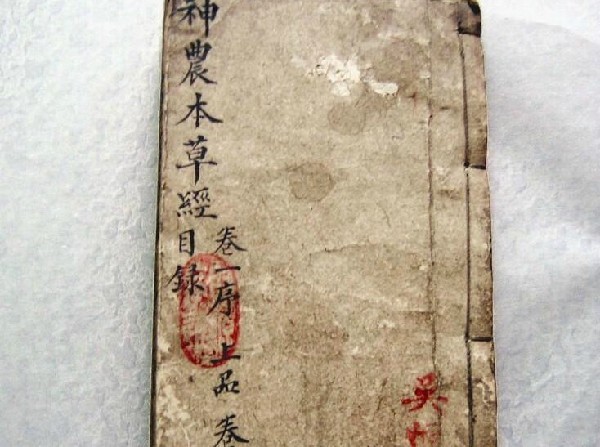 神農本草經目錄
卷一序 上品 卷
吳